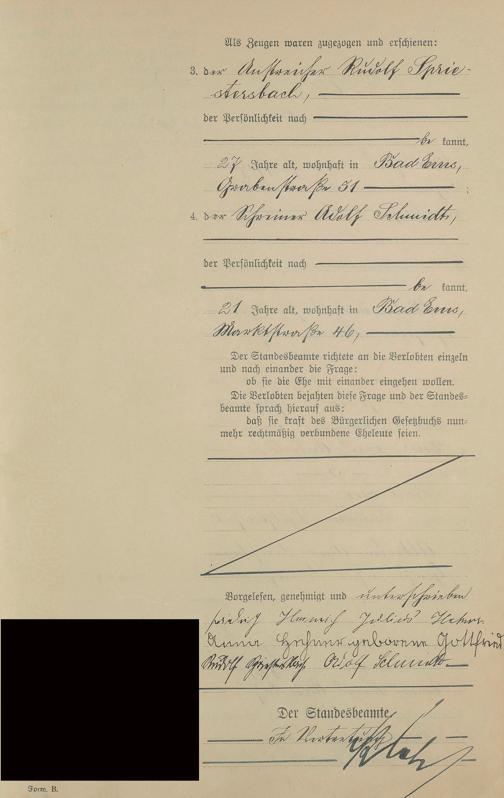 Als Zeugen waren zugezogen und erschienen:
3. der Anstreicher Rudolf Sprie-
stersbach,
der Persönlichkeit nach
be kannt,
27 Jahre alt, wohnhaft in Bad Ems,
Grabenstraße 51 ;
4. der Schreiner Adolf Schmidt,
der Persönlichkeit nach
be kannt,
21 Jahre alt, wohnhaft in Bad Ems,
Marktstraße 46,
Der Standesbeamte richtete an die Verlobten einzeln
und nach einander die Frage:
ob sie die Ehe mit einander eingehen wollen.
Die Verlobten bejahten diese Frage und der Standes-
beamte sprach hierauf aus:
daß sie kraft des Bürgerlichen Gesetzbuchs nun-
mehr rechtmäßig verbundene Eheleute seien.
Vorgelesen, genehmigt und unterschrieben
Heinrich Julius
Anna geborene Gottfried
Rudolf Adolf Schmidt
Der Standesbeamte
In Vertretung
Form. B.